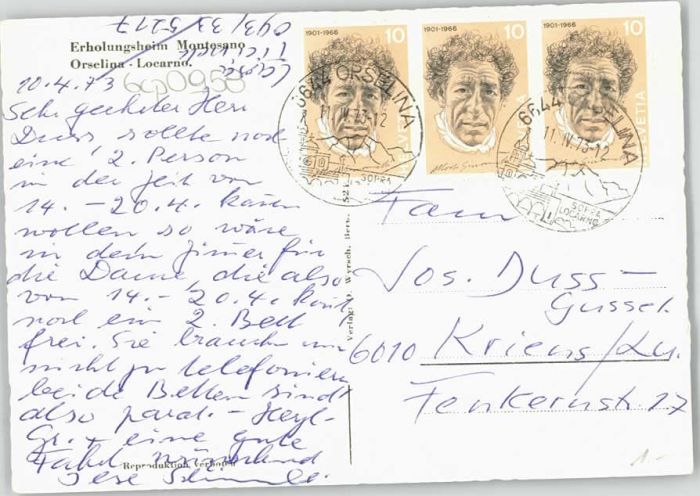 093/33 5217
Erholungsheim Montesano
Orselina - Locarno.
10.4.73
Sehr geehrter Herr
Duss, sollte noch
eine 2. Person
in der Zeit von
14. - 20.4. kommen
wollen so wäre
in dem Zimer für
die Dame, die also
von 14. - 20.4. kommt
noch ein 2. Bett
frei. Sie brauchen
nicht zu telefonieren
beide Betten sind
also parat. - Herzl.
Gr. + eine gute
Fahrt wünschend
Ihre
Reproduktion verboten
1901-1966 10
HELVETIA
1901-1966 10
HELVETIA
1901-1966 10
HELVETIA
6644 ORSELINA
11.IV.73-12
SOPRA
6644 ORSELINA
11.IV.73-12
SOPRA
LOCARNO
Fam
Jos. Duss -
Gussel
6010 Kriens/Lu.
Fenkernstr. 17
1.-